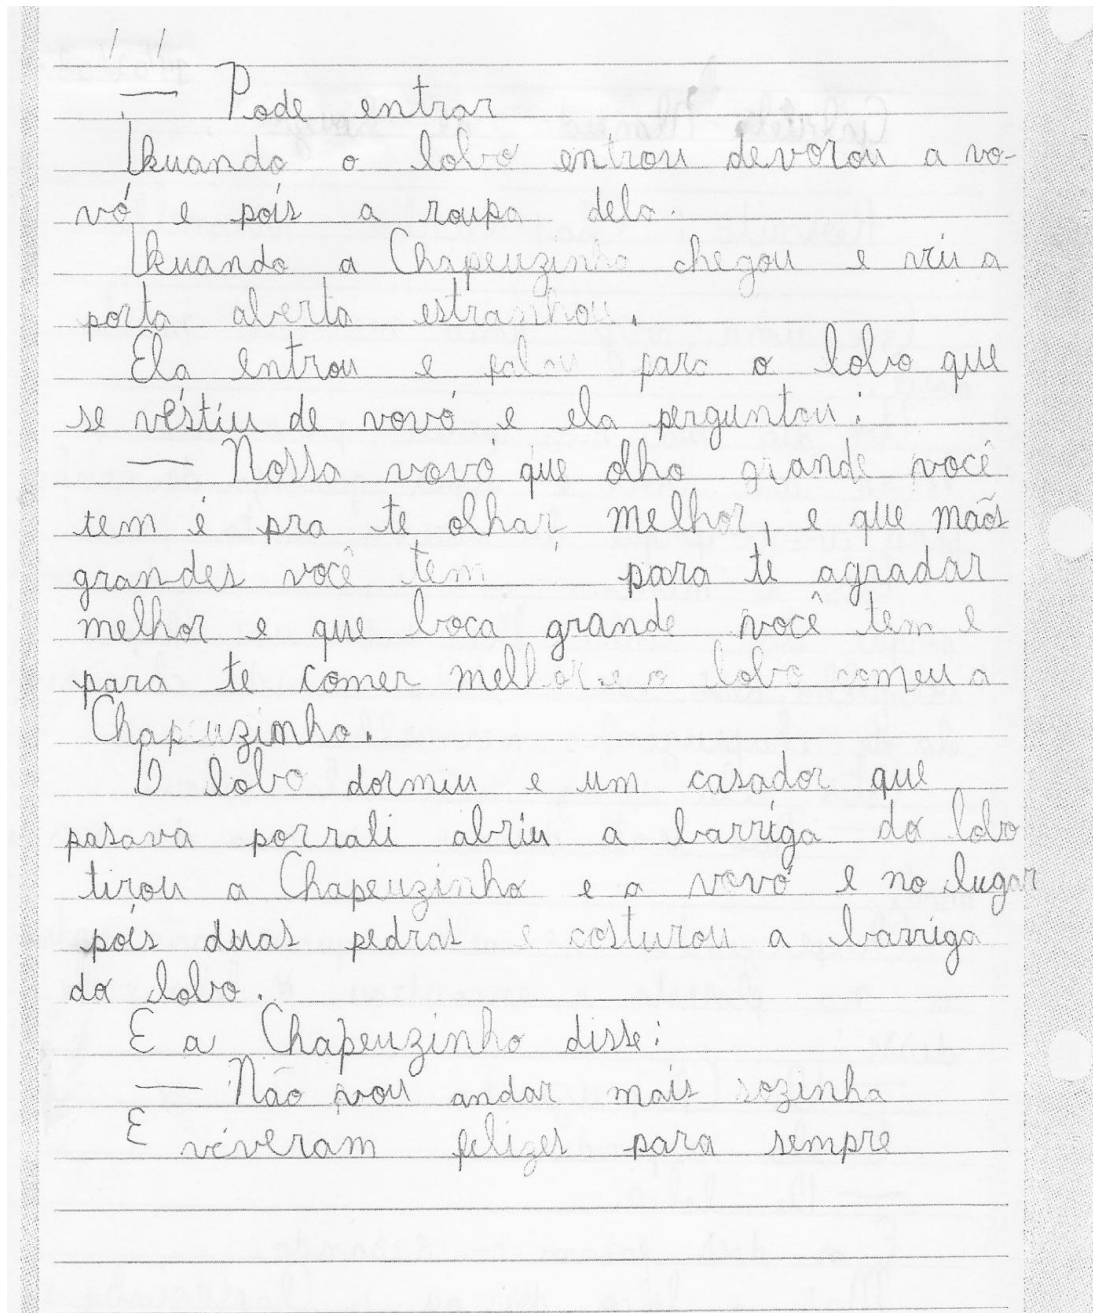 — Pode entrar
Quando o lobo entrou devorou a vo-
vó e pois a roupa dela.
Quando a Chapeuzinho chegou e viu a
porta aberta estranhou.
Ela entrou e falou para o lobo que
se véstiu de vovó e ela perguntou:
— Nossa vovo que olho grande você
tem é pra te olhar melhor, e que mãos
grandes você tem para te agradar
melhor e que boca grande você tem e
para te comer melhor e o lobo comeu a
Chapeuzinho.
O lobo dormiu e um casador que
pasava porrali abriu a barriga do lobo
tirou a Chapeuzinho e a vovó e no lugar
pois duas pedras e costurou a barriga
do lobo.
E a Chapeuzinho disse:
— Não vou andar mais sozinha
E viveram felizes para sempre